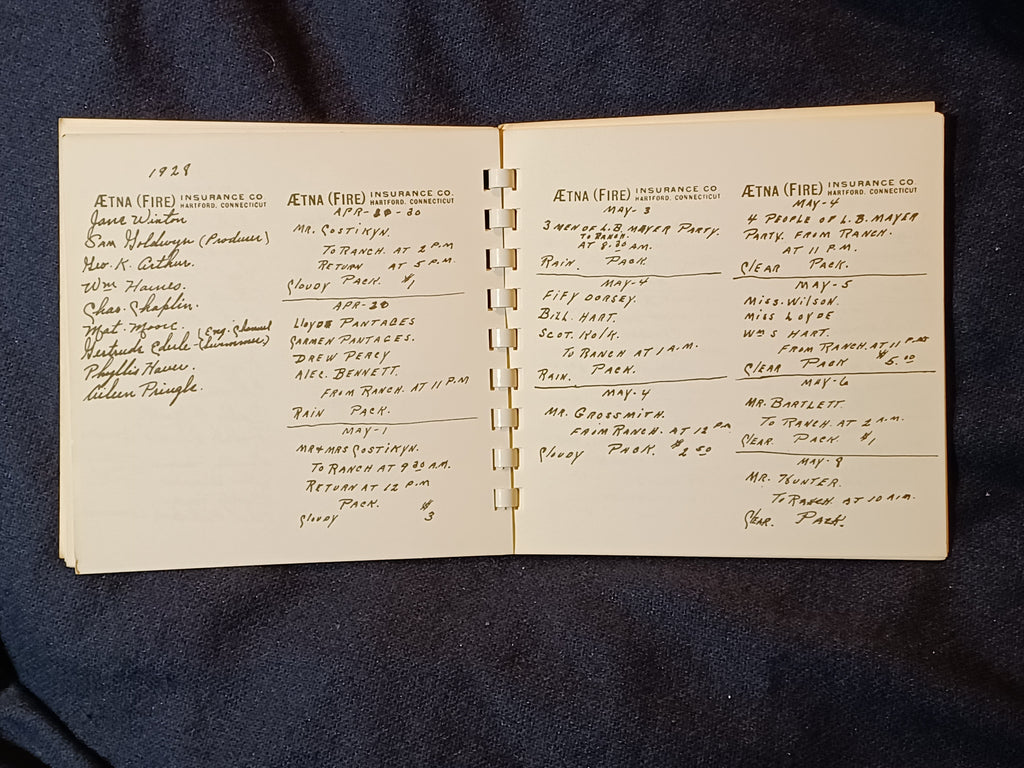 1928
ÆTNA (FIRE) INSURANCE CO.
HARTFORD, CONNECTICUT
Jane Winton
Sam Goldwyn (Producer)
Geo. K. Arthur.
Wm Haines.
Chas. Chaplin.
Mat. Moore.
Gertrude Ederle (Eng. Channel
(Swimmer)
Phyllis Haver.
Aileen Pringle.
ÆTNA (FIRE) INSURANCE CO.
HARTFORD, CONNECTICUT
APR-30-30
MR. COSTIKYN.
TO RANCH. AT 2 P.M
RETURN AT 5 P.M.
CLOUDY PACK. $1
APR-30
LLOYDE PANTAGES
CARMEN PANTAGES.
DREW PERCY
ALEC. BENNETT.
FROM RANCH AT 11 P.M
RAIN PACK.
MAY-1
MR & MRS COSTIKYN.
TO RANCH AT 9 30 A.M.
RETURN AT 12 P.M
PACK. $
CLOUDY 3
ÆTNA (FIRE) INSURANCE CO.
HARTFORD, CONNECTICUT
MAY-3
3 MEN OF L.B. MAYER PARTY.
TO RANCH.
AT 8.30 AM.
RAIN. PACK.
MAY-4
FIFY DORSEY.
BILL. HART.
SCOT. KOLK.
TO RANCH AT 1 A.M.
RAIN. PACK.
MAY-4
MR. GROSSMITH.
FROM RANCH. AT 12 P.M
CLOUDY PACK. $2 50
ÆTNA (FIRE) INSURANCE CO.
HARTFORD, CONNECTICUT
MAY-4
4 PEOPLE OF L.B. MAYER
PARTY. FROM RANCH.
AT 11 P.M.
CLEAR PACK.
MAY-5
MISS. WILSON.
MISS LOYDE
WMS HART.
FROM RANCH. AT 11 P.M
CLEAR PACK $5.00
MAY-6
MR. BARTLETT.
TO RANCH. AT 2 A.M.
CLEAR. PACK $1
MAY-8
MR. HUNTER.
TO RANCH. AT 10 A.M.
CLEAR. PACK.